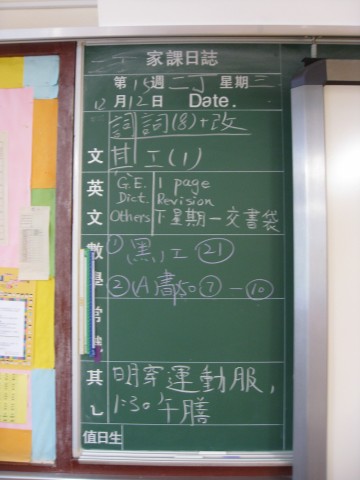 家課日誌
第15週二丁星期三
12月12日 Date.
詞 詞(8)+改
文 其 工(1)
英 G.E. 1 page
Dict. Revision
文 Others 下星期一交書袋
數 ① (黑)工 ㉑
學 ② (A)書 ⑦ — ⑩
常
其 明穿運動服,
1:30午膳
值日生